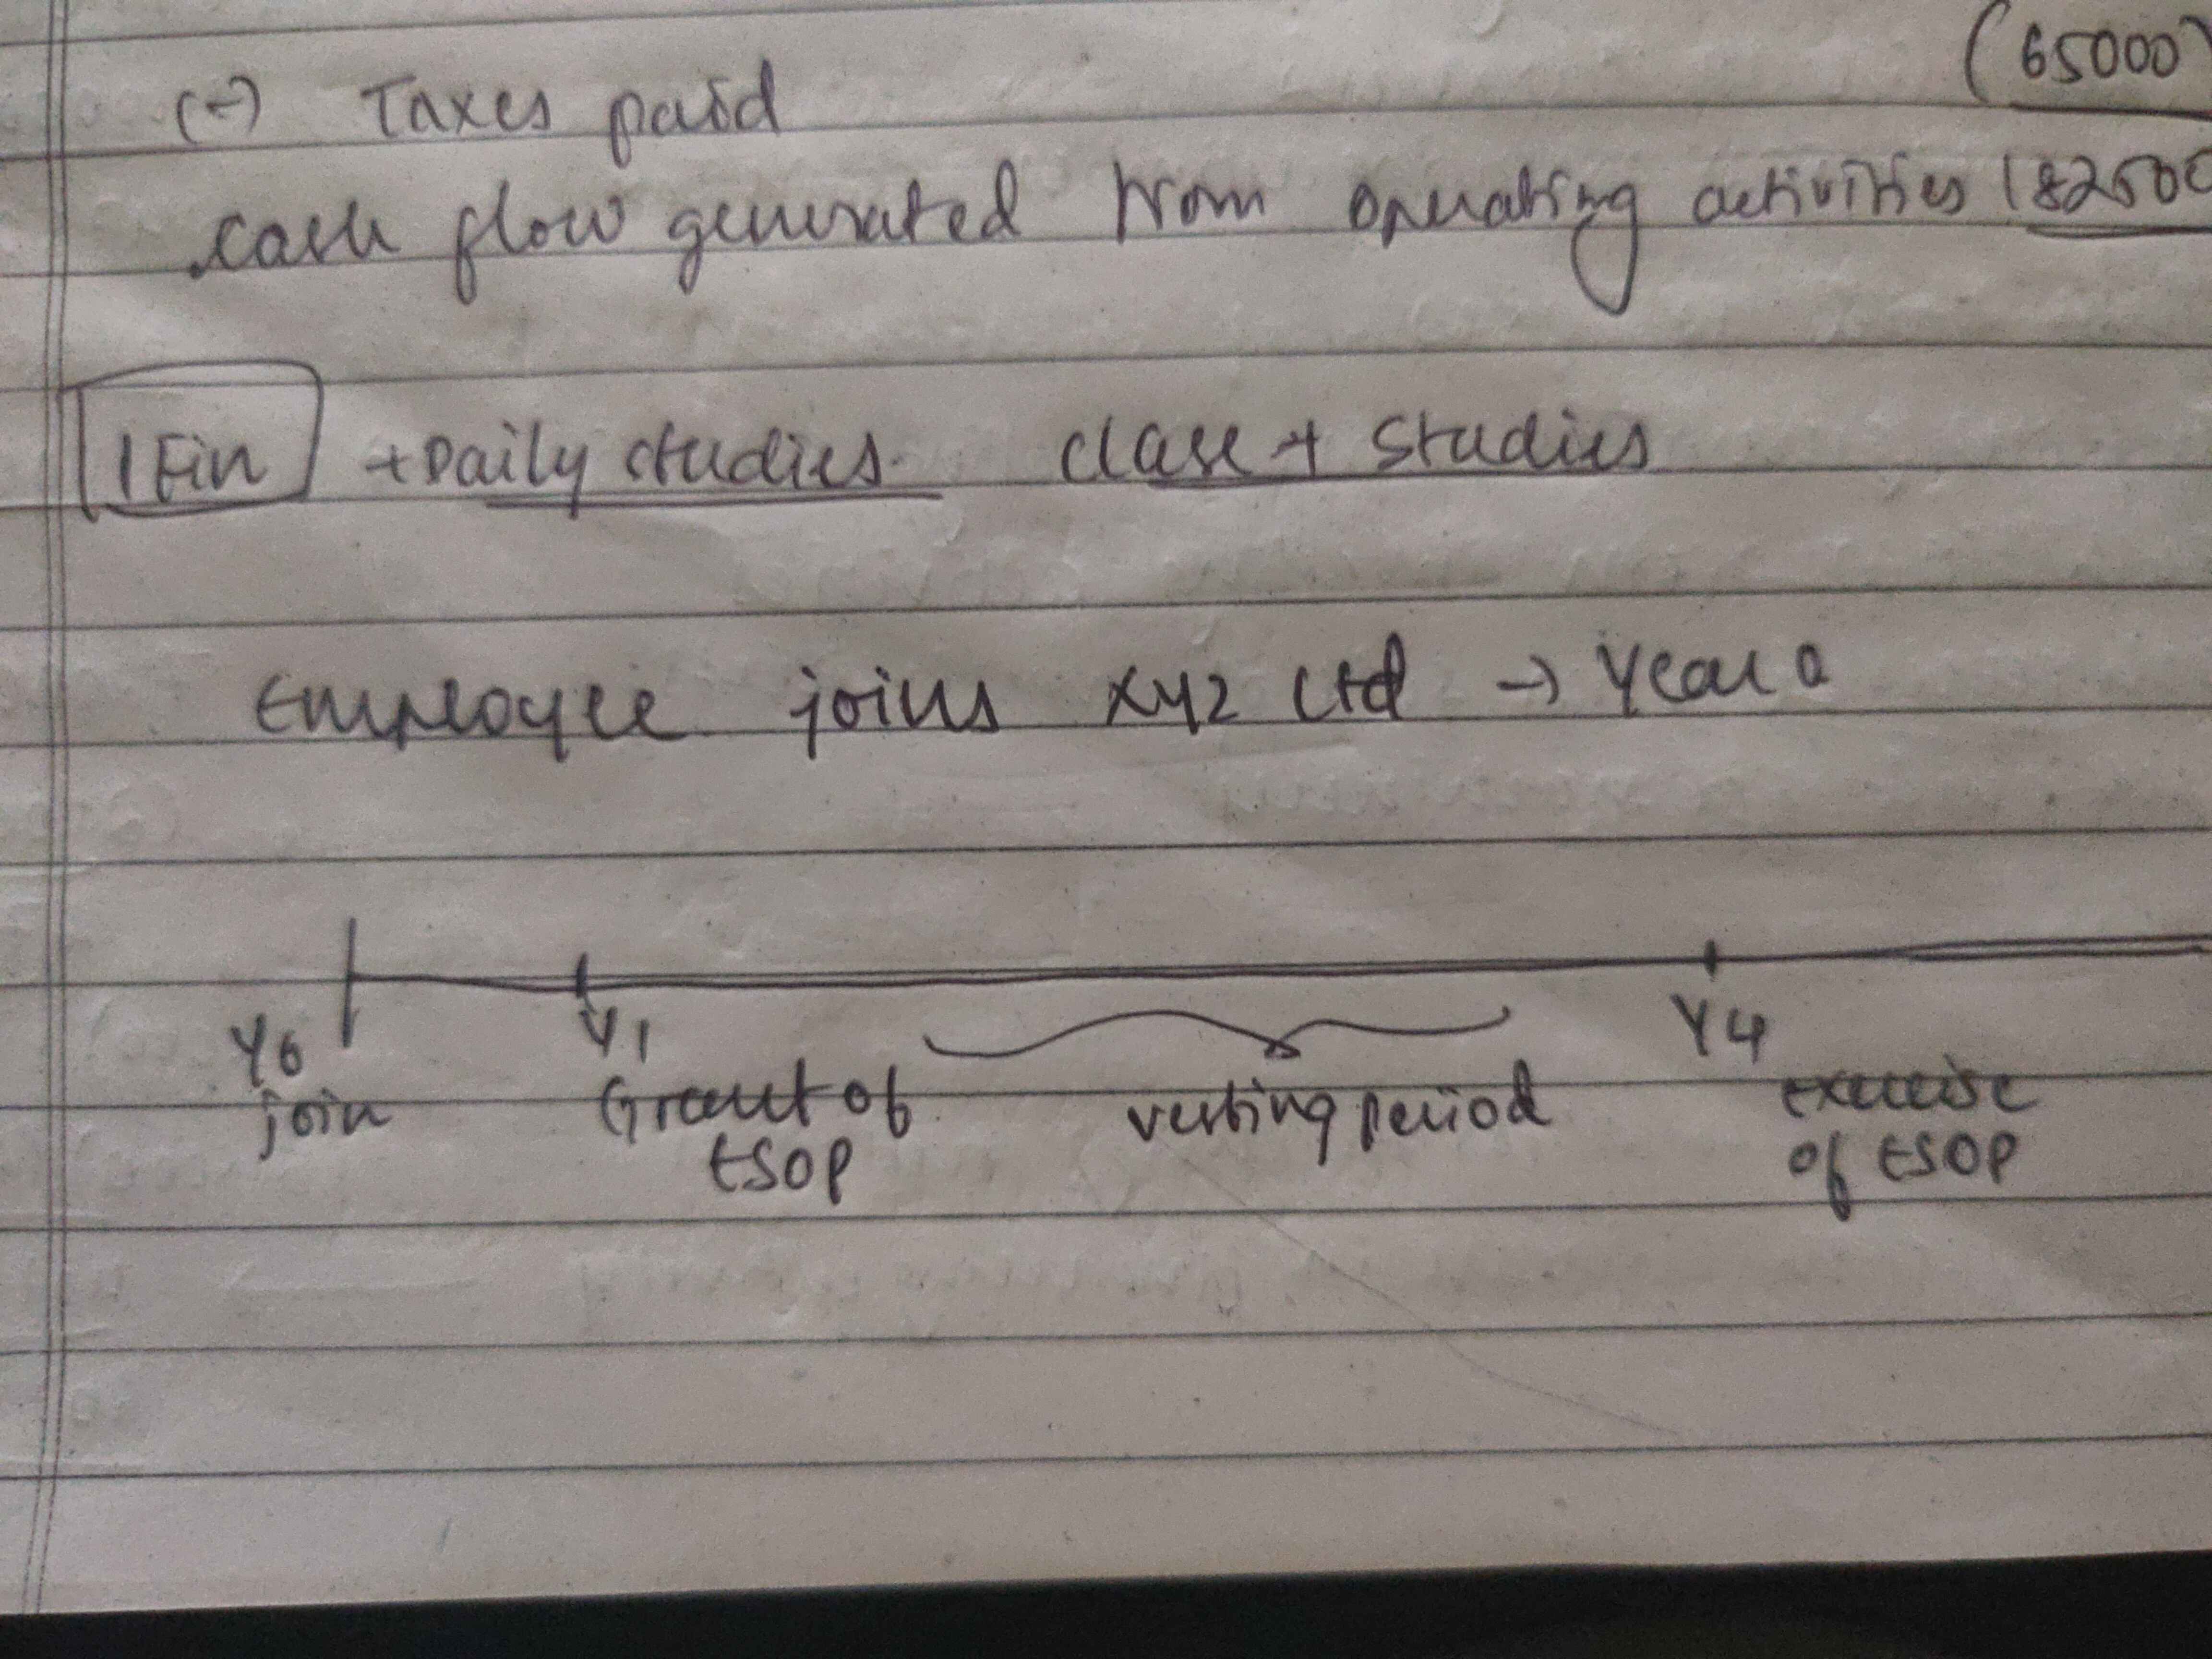 (65000)
(-) Taxes paid
cash flow generated from operating activities 182500
1 Fin + Daily studies. class + studies
Employee joins XYZ Ltd → Year 0
Y0 Y1 Y4
join Grant of vesting period exercise
ESOP of ESOP